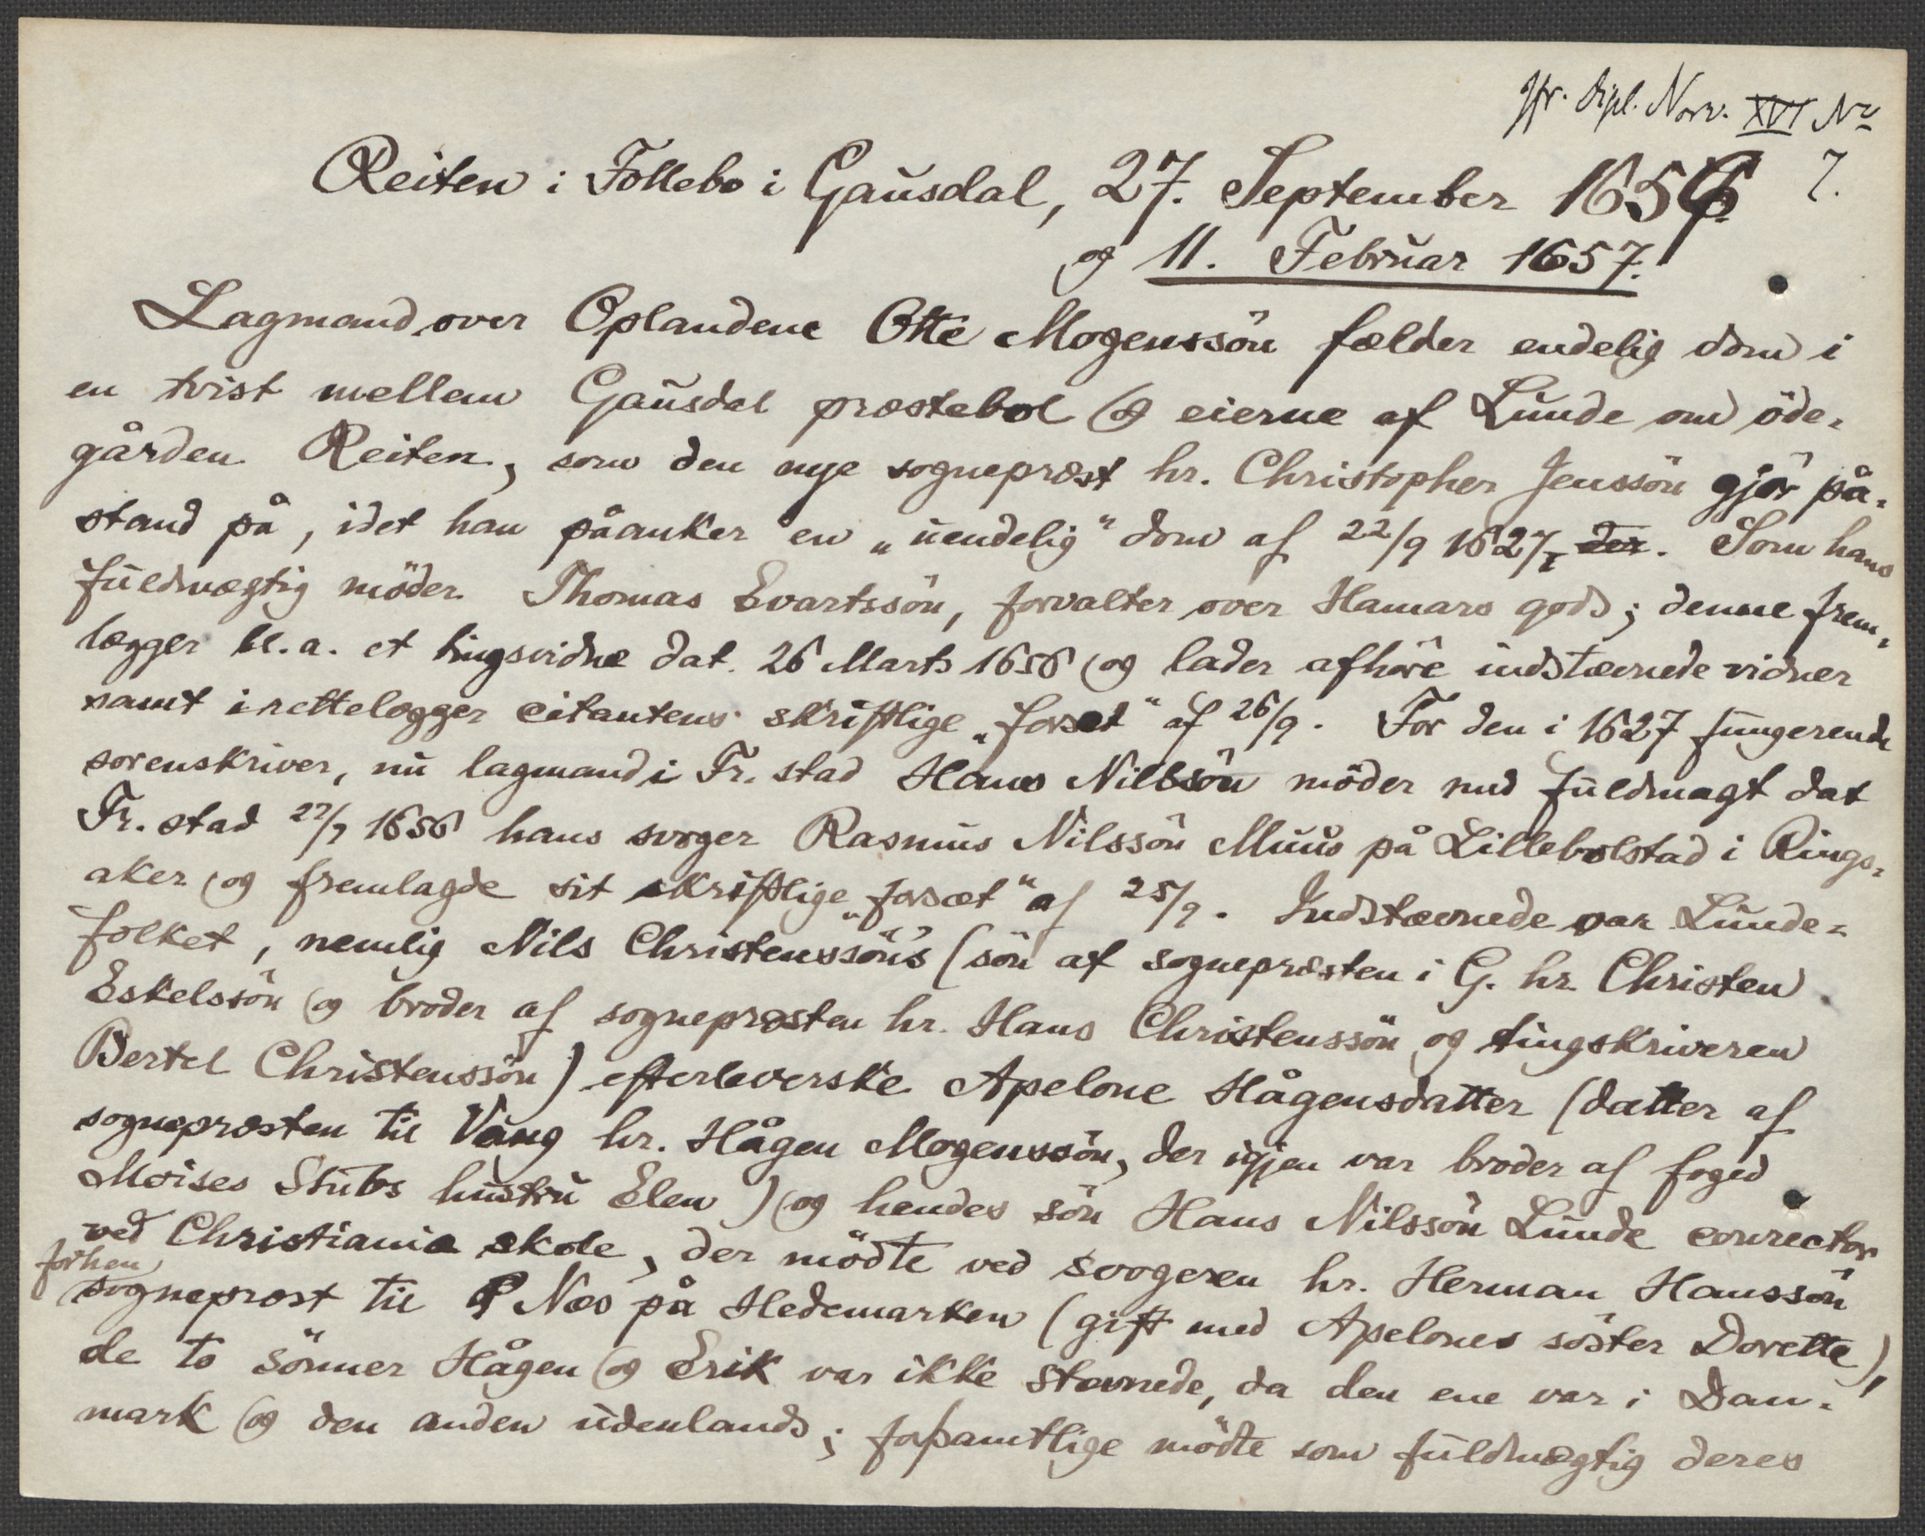 Jfr. Dipl. Norv. XVI No
7.
Reiten i Follebo i Gausdal, 27. September 1656
og 11. Februar 1657.
Lagmand over Oplandene Otte Mogenssön fælder endelig dom i
en tvist mellem Gausdal præstebol og eierne af Lunde om öde-
gården Reiten, som den nye sogneprest hr. Christopher Jenssön gjör på-
stand på, idet han påanker en „uendelig“ dom af 22/9 1627, der. Som hans
fuldmægtig möder Thomas Evartssön, forvalter over Hamars gods; denne frem-
lægger bl. a. et tingsvidne dat. 26 Marts 1656 og lader afhöre indstævnede vidner
samt irettelægger citantens skriftlige „forsæt“ af 26/9. For den i 1627 fungerende
sorenskriver, nu lagmand i Fr. stad Hans Nilssön möder med fuldmagt dat
Fr. stad 22/7 1656 hans svoger Rasmus Nilssön Muus på Lillebolstad i Rings-
aker og fremlagde sit skriftlige „forsæt“ af 25/9. Indstævnede var Lunde-
folket, nemlig Nils Christenssöns (sön af sognepræsten i G. hr. Christen
Eskelssön og broder af sognepræsten hr. Hans Christenssön og tingskriveren
Bertel Christenssön) efterleverske Apelone Hågensdatter (datter af
sognepræsten til Vang hr. Hågen Mogenssön, der igjen var broder af foged
Moises Stubs hustru Elen) og hendes sön Hans Nilssön Lunde conrector
ved Christiania skole, der mödte ved svogeren hr. Herman Hanssön
forhen
sogneprest til Nes på Hedemarken (gift med Apelones söster Dorette),
de to sönner Hågen og Erik var ikke stævnede, da den ene var i Dan-
mark og den anden udenlands; forsamtlige mödte som fuldmægtig deres